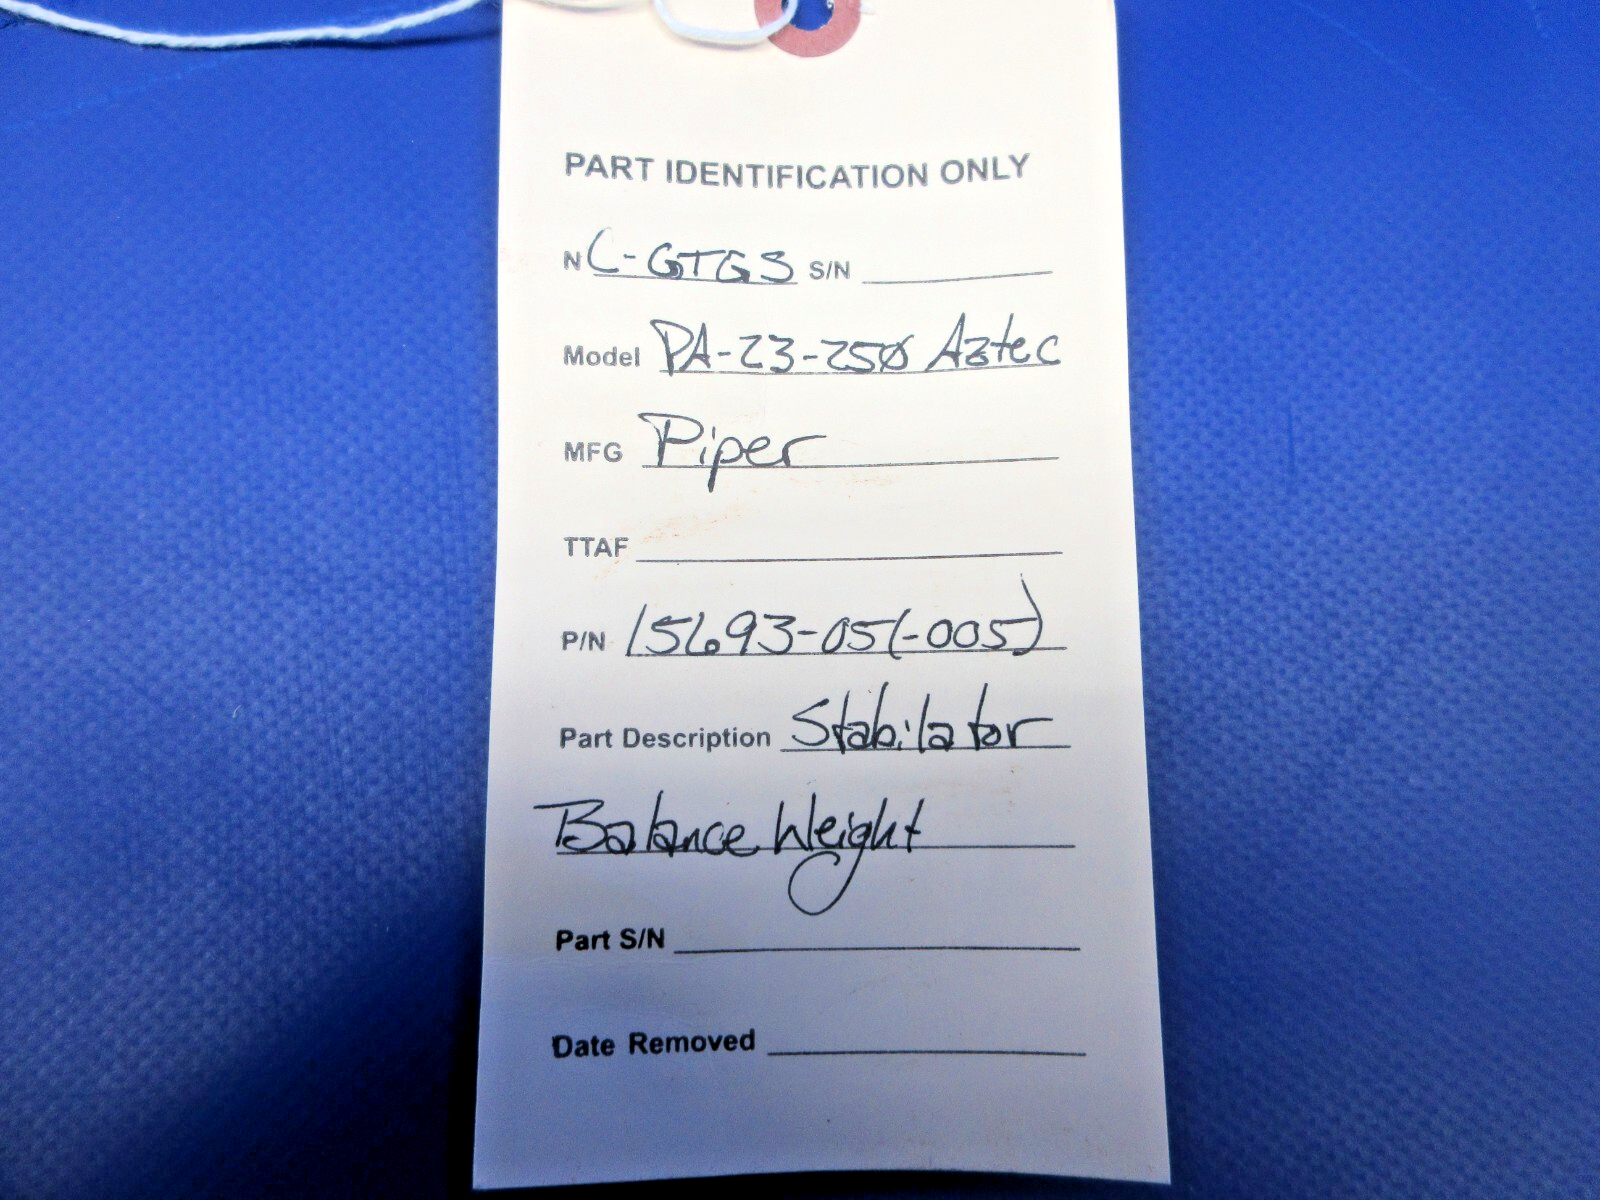 PART IDENTIFICATION ONLY
N C-GTGS S/N
Model PA-23-250 Aztec
MFG Piper
TTAF
P/N 15693-05(-005)
Part Description Stabilator
Balance Weight
Part S/N
Date Removed